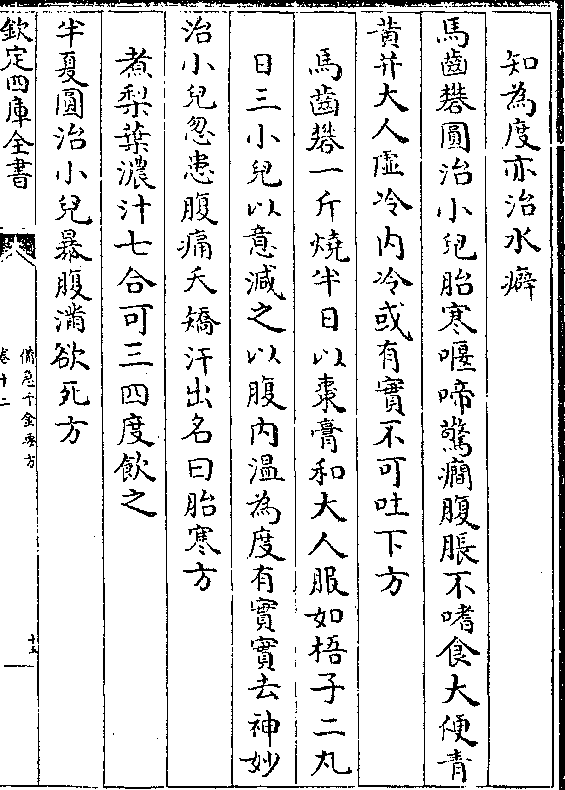 知為度亦治水癖
馬齒礬圓治小兒胎寒𠹌啼驚癇腹脹不嗜食大便青
黄并大人虛冷内冷或有實不可吐下方
馬齒礬一斤燒半日以棗膏和大人服如梧子二丸
日三小兒以意減之以腹内溫為度有實實去神妙
治小兒忽患腹痛夭矯汗出名曰胎寒方
煮梨葉濃汁七合可三四度飲之
半夏圓治小兒暴腹滿欲死方
欽定四庫全書
備急千金要方
卷十二